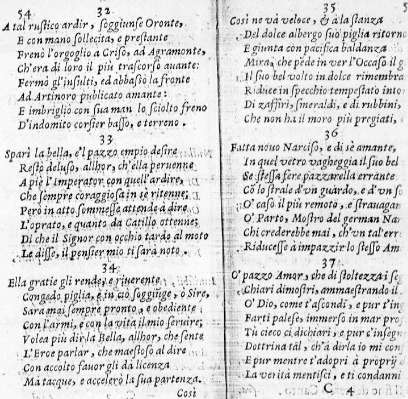 54 32
A tal rustico ardir, soggiunse Oronte,
E con mano sollecita, e prestante
Frenò l'orgoglio a Criso, ad Agramonte,
Ch'era di loro il più trascorso auante:
Fermò gl'insulti, ed abbassò la fronte
Ad Artinoro publicato amante:
E imbrigliò con sua man lo sciolto freno
D'indomito corsier basso, e terreno.
33
Sparì la bella, e'l pazzo empio desire
Restò deluso, allhor, ch'ella peruenne
A piè l'Imperator con quell'ardire,
Che sempre coraggiosa in sè ritenne;
Però in atto sommesse attende à dire
L'oprato, e quanto da Catillo ottenne;
Di che il Signor con occhio tardo al moto
Le disse, il pensier mio ti sarà noto.
34
Ella gratie gli rende, e riuerente
Congedo piglia, e in ciò soggiũge, ò Sire,
Sara mai sempre pronto, e obediente
Con l'armi, e con la vita il mio seruire;
Volea più dir la Bella, allhor, che sente
L'Eroe parlar, che maestoso al dire
Con accolto fauor gli dà licenza
Ma tacque, e accelerò la sua partenza.
Così
35
Così ne và veloce, & à la stanza
Del dolce albergo suò piglia ritorno
E giunta con pacifica baldanza
Mira, che pède in ver l'Occaso il g
Il suo bel volto in dolce rimembra
Riduce in specchio tempestato into
Di zaffiri, smeraldi, e di rubbini,
Che non ha il moro più pregiati,
36
Fatta nouo Narciso, e di sè amante,
In quel vetro vagheggia il suo bel
Se stessa fere pazzarella errante
Cò lo strale d'vn guardo, e d'vn s
O' caso il più remoto, e strauagan
O' Parto, Mostro del german Na
Chi crederebbe mai, ch'vn tal'err
Riducesse à impazzir lo stesso Am
37
O' pazzo Amor, che di stoltezza i s
Chiari dimostri, ammaestrando il
O' Dio, come t'ascondi, e pur t'in
Farti palese, immerso in mar pro
Tù cieco ci dichiari, e pur c'inseg
Dottrina tal, ch'à dirla io mi con
E pur mentre t'adopri à proprij
La verità mentisci, e ti condanni
C 4